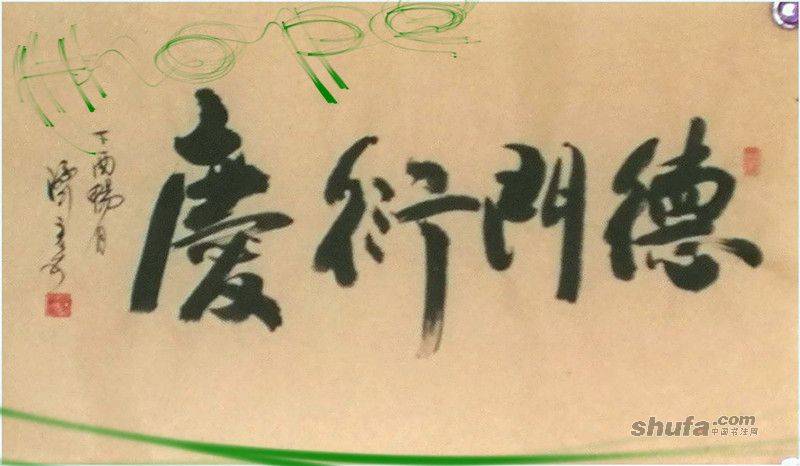 德門衍慶
丁酉陽月
Hope
shufa.com
中国书法网